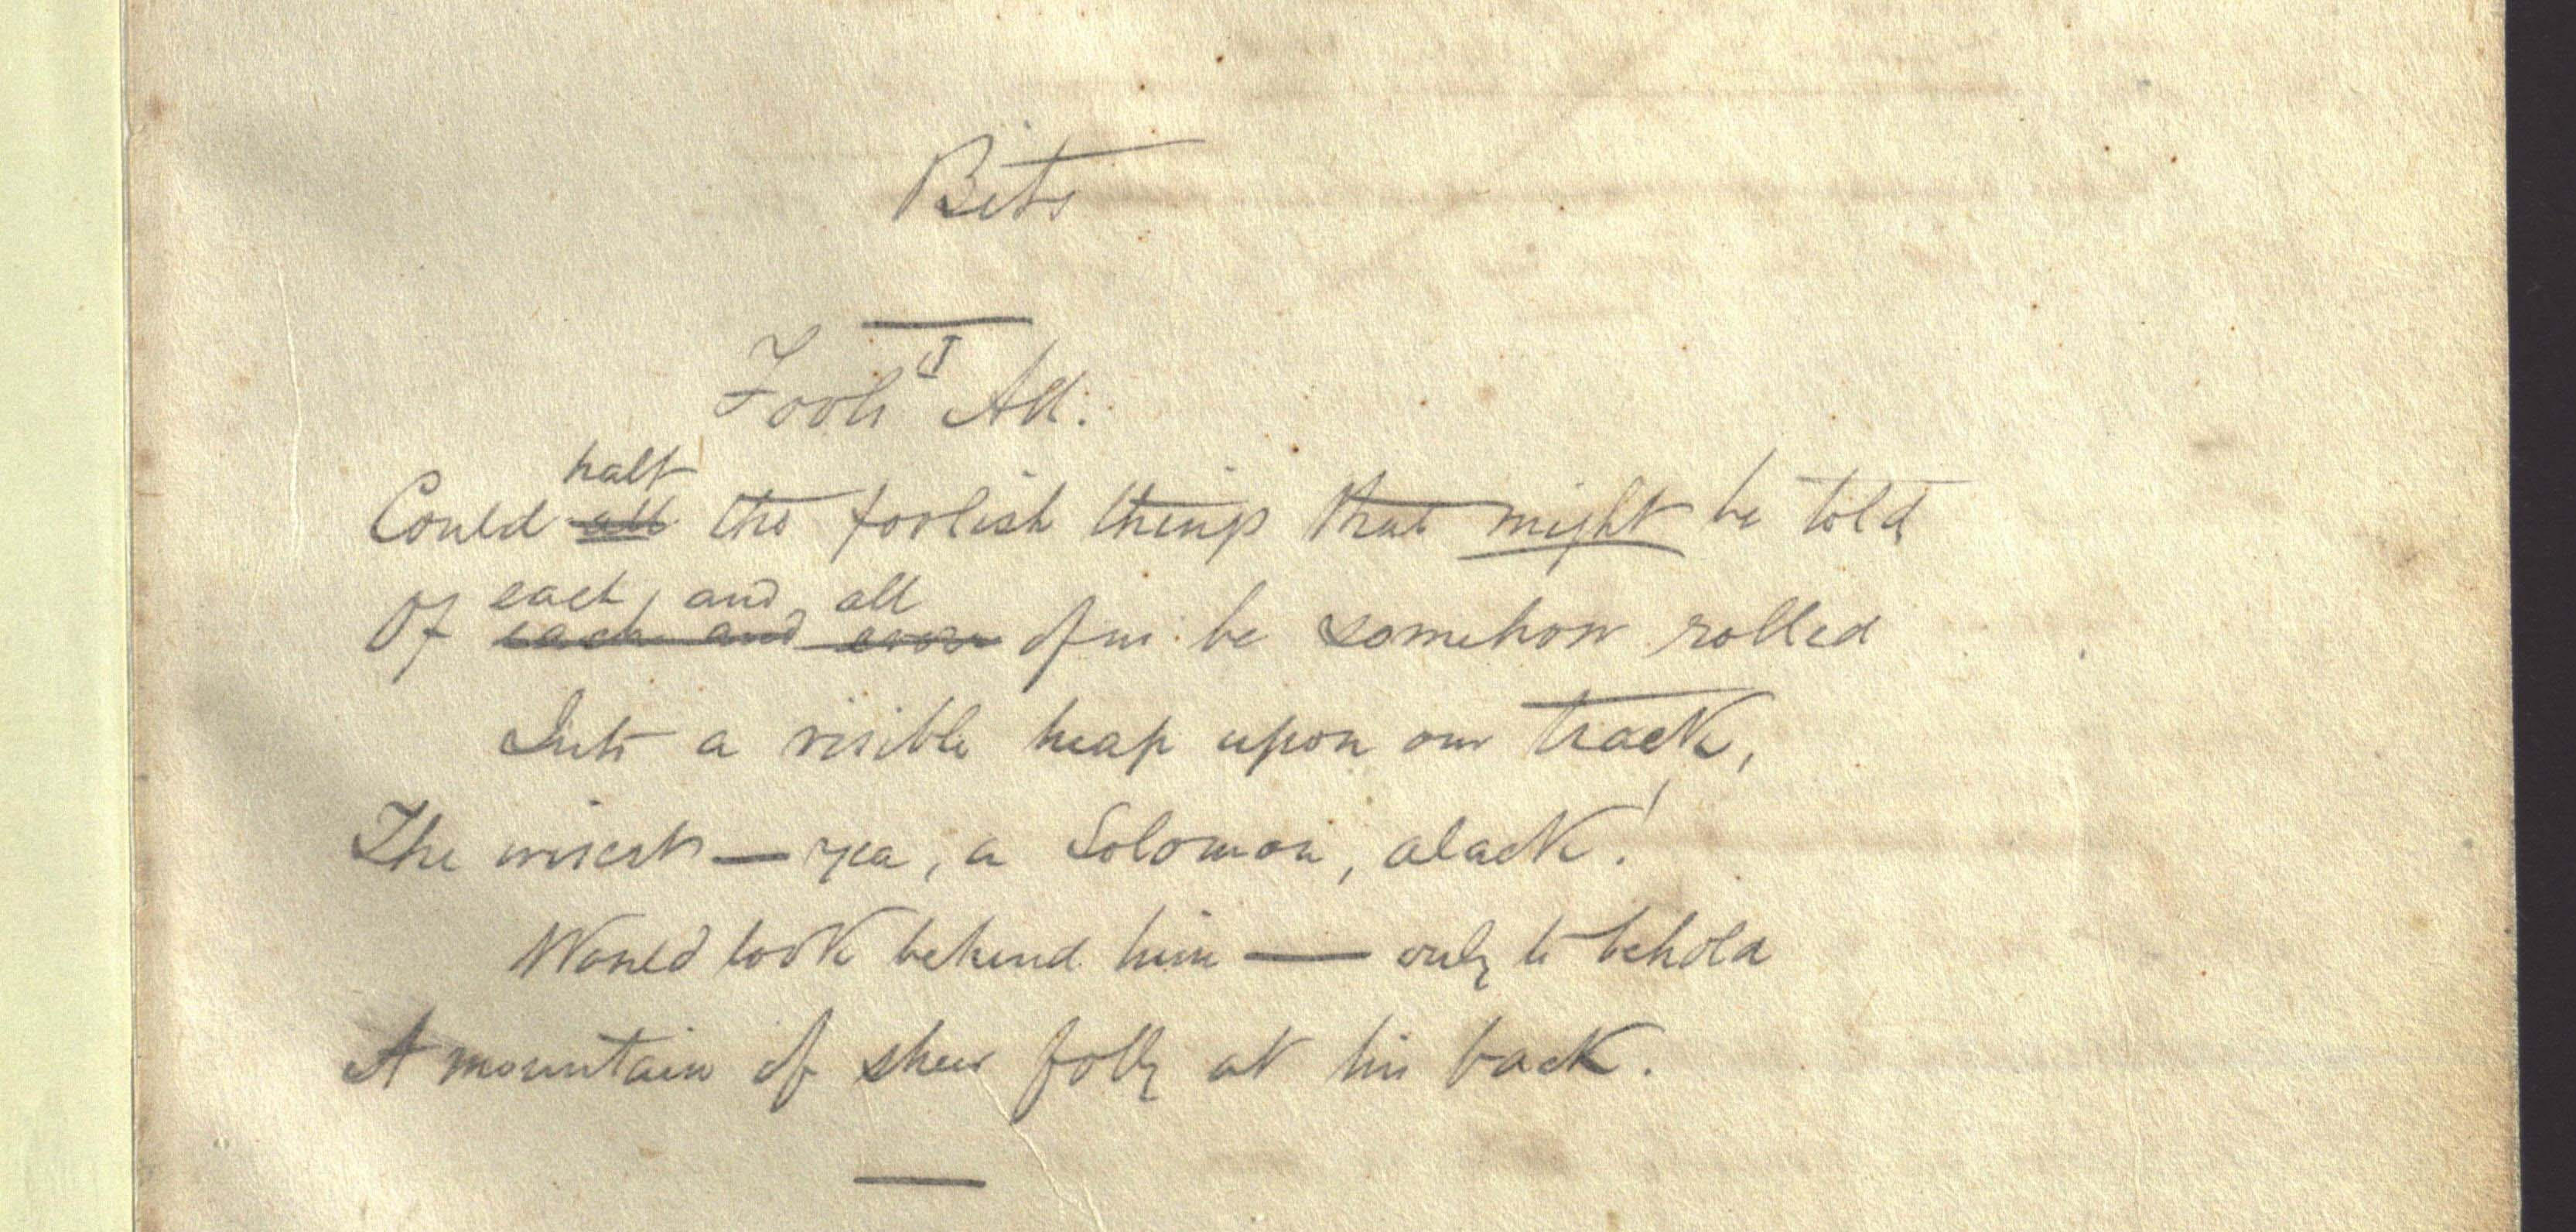 Bits
I
Fools All.
half
Could all the foolish things that might be told
each, and, all
Of each and ever of us be somehow rolled
Into a visible heap upon our track,
The wisest — yea, a Solomon, alack!
Would look behind him — only to behold
A mountain of sheer folly at his back.